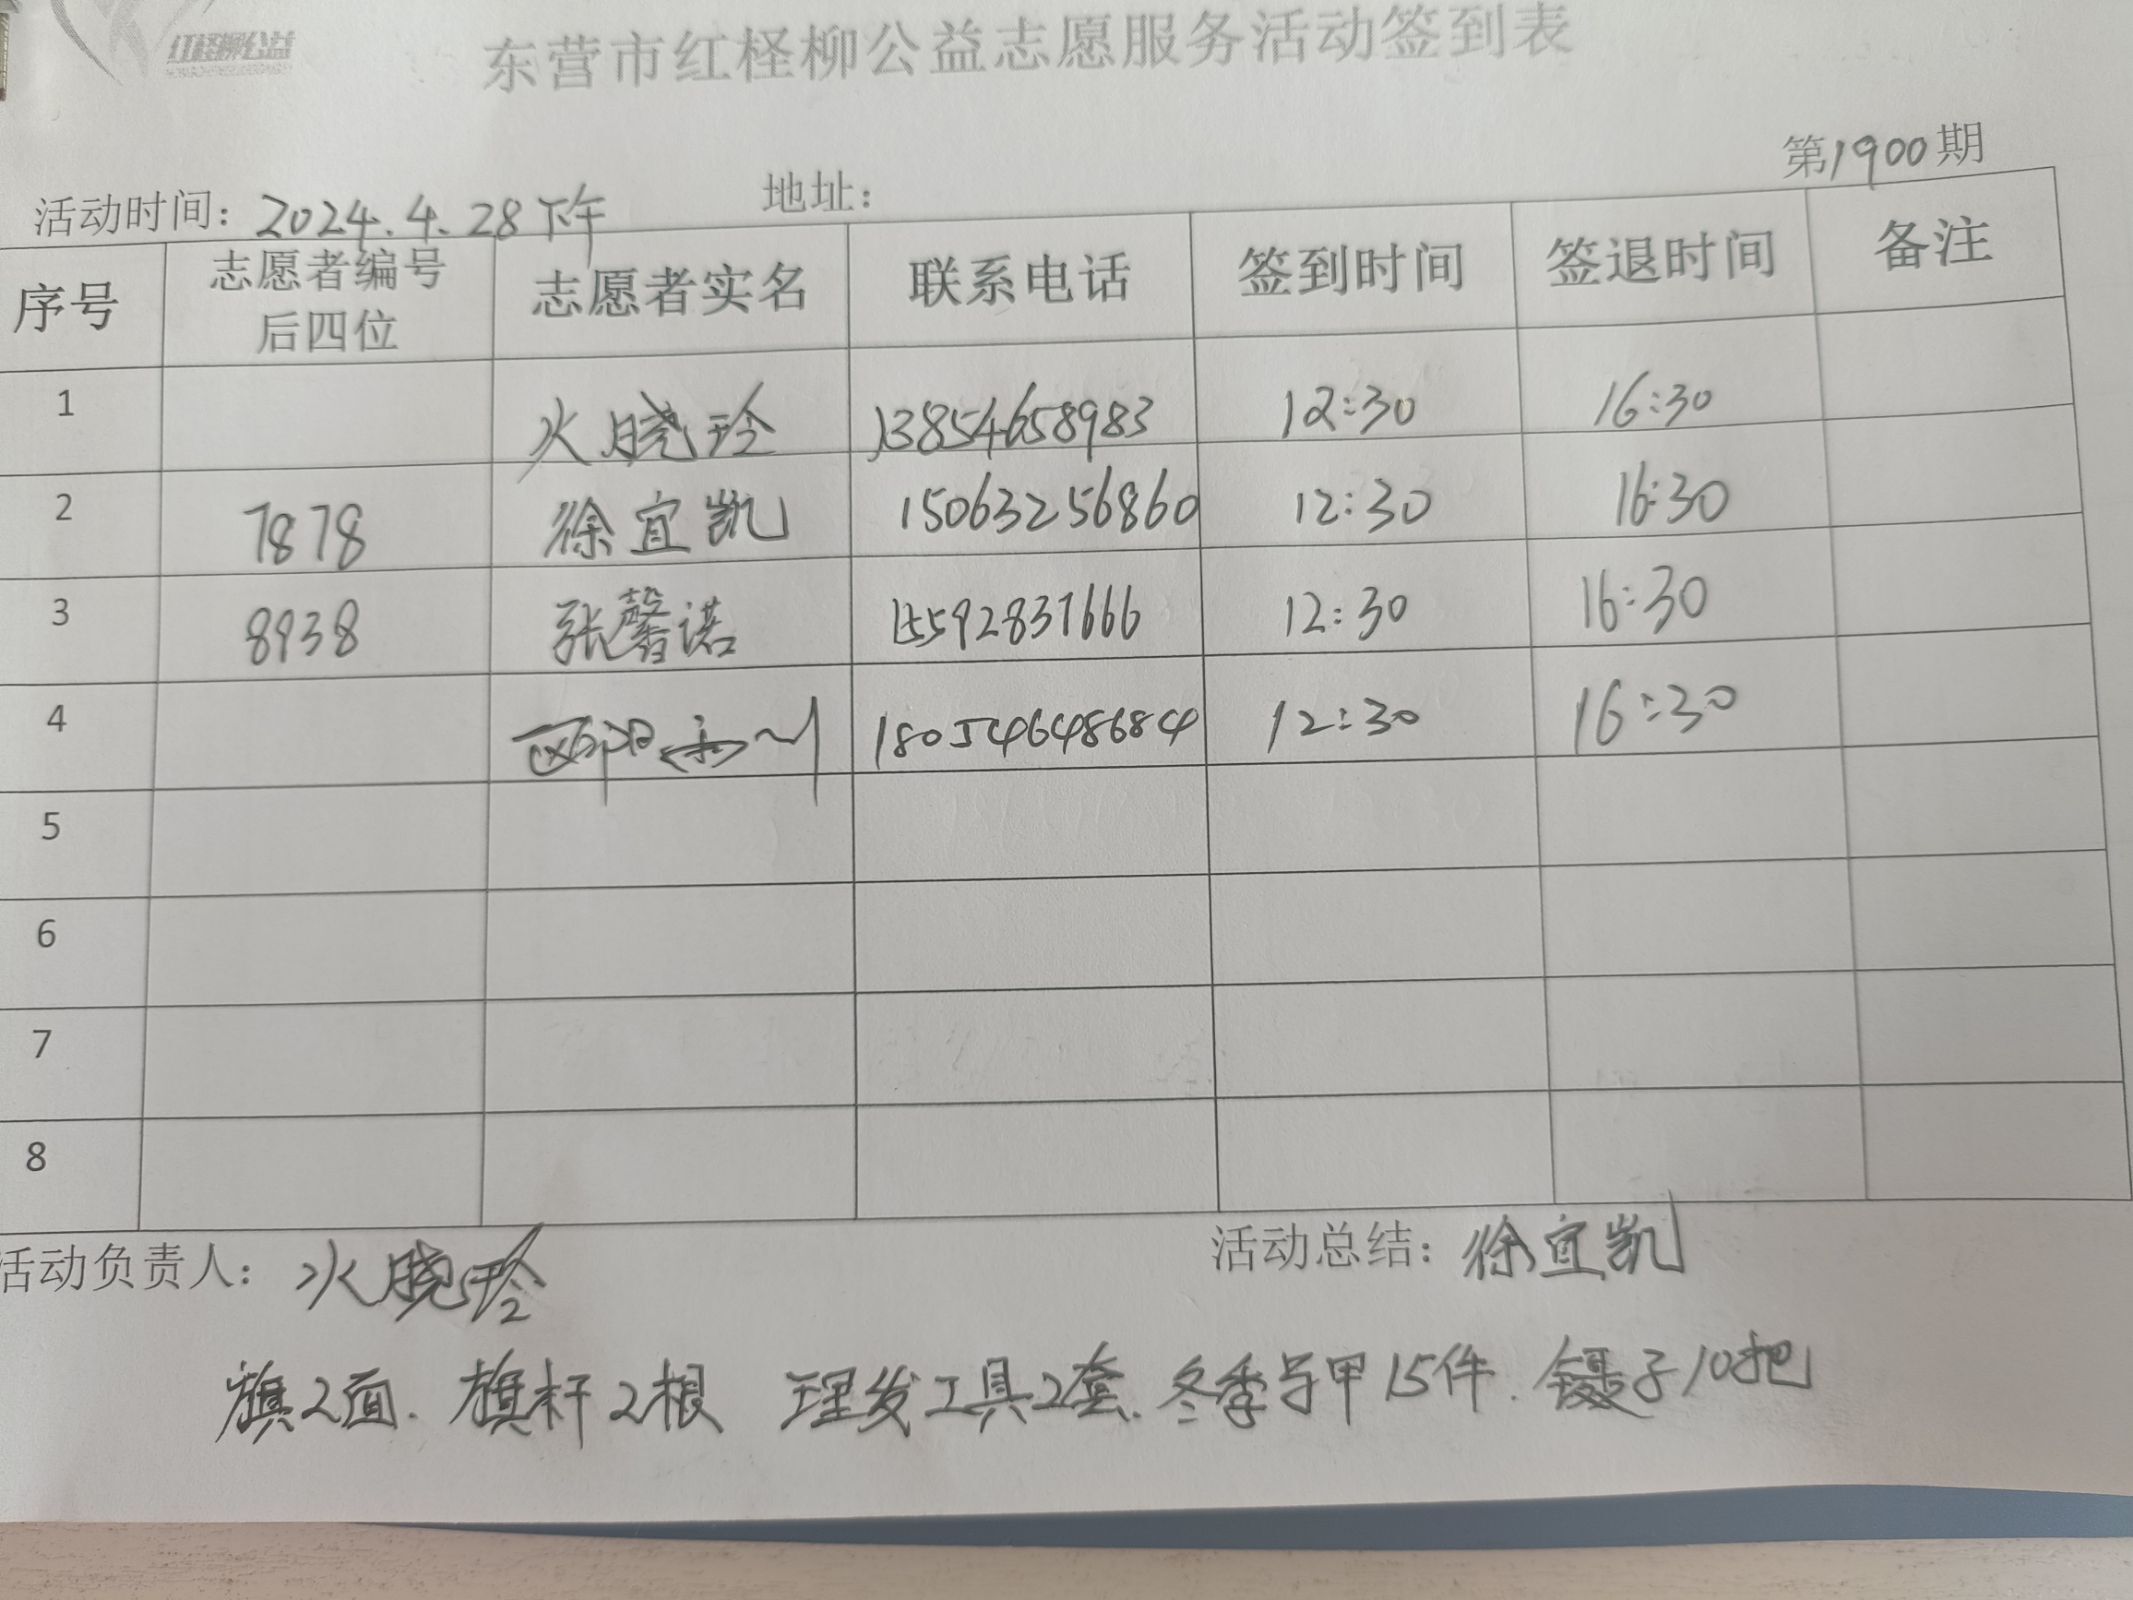 红柽柳公益
东营市红柽柳公益志愿服务活动签到表
第1900期
活动时间：2024.4.28下午 地址：
序号 志愿者编号后四位 志愿者实名 联系电话 签到时间 签退时间 备注
1 火晓玲 13854658983 12:30 16:30
2 7878 徐宜凯 15063256860 12:30 16:30
3 8938 张馨诺 15592831666 12:30 16:30
4 18054648684 12:30 16:30
5
6
7
8
活动负责人：火晓玲 活动总结：徐宜凯
旗2面. 旗杆2根 理发工具2套. 冬季马甲15件. 镊子10把